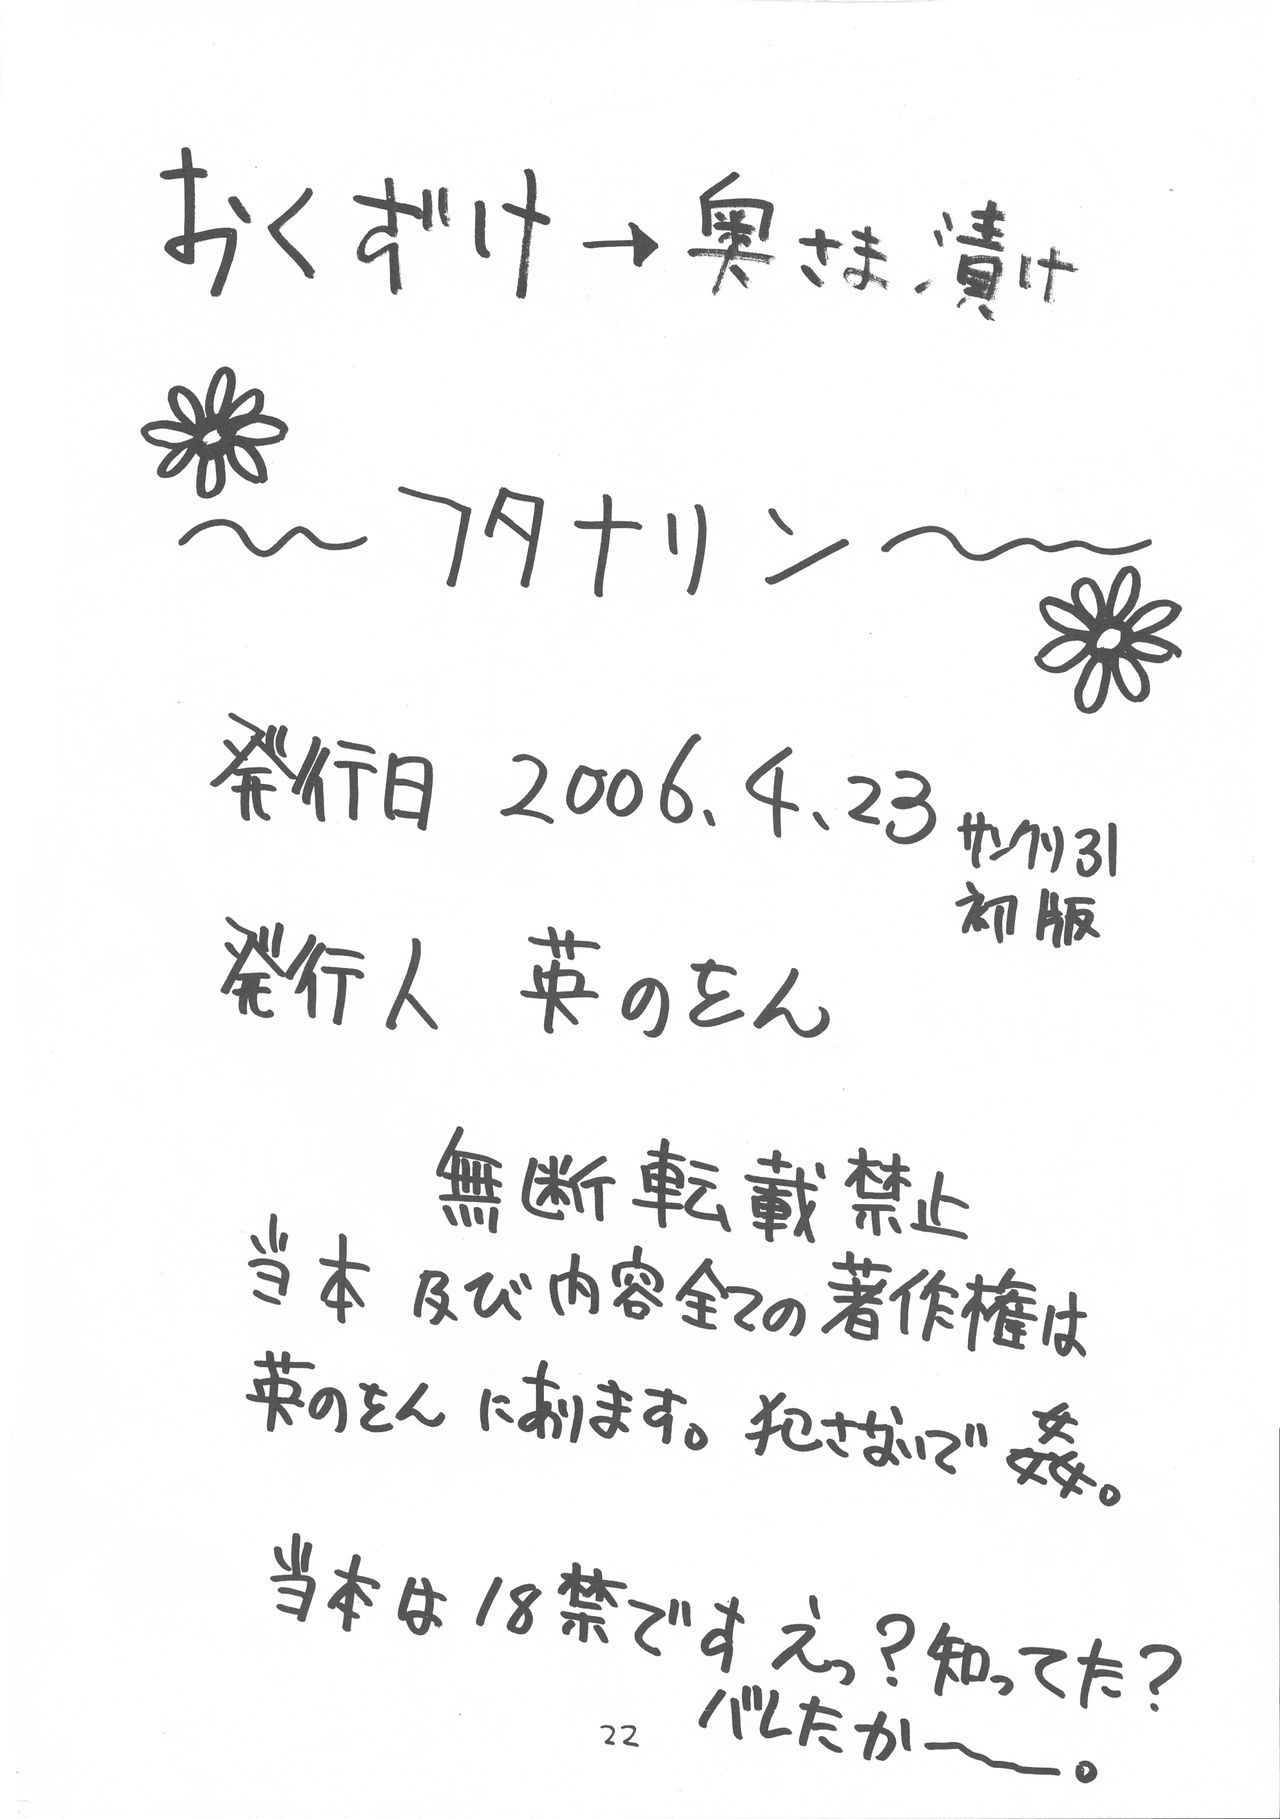 おくずけ→奥さま漬け
〜フタナリン〜
発行日 2006.4.23
サンクリ31
初版
発行人 英のをん
無断転載禁止
当本及び内容全ての著作権は
英のをんにあります。犯さないで姦。
当本は18禁ですえっ?知ってた?
バレたかー。
22